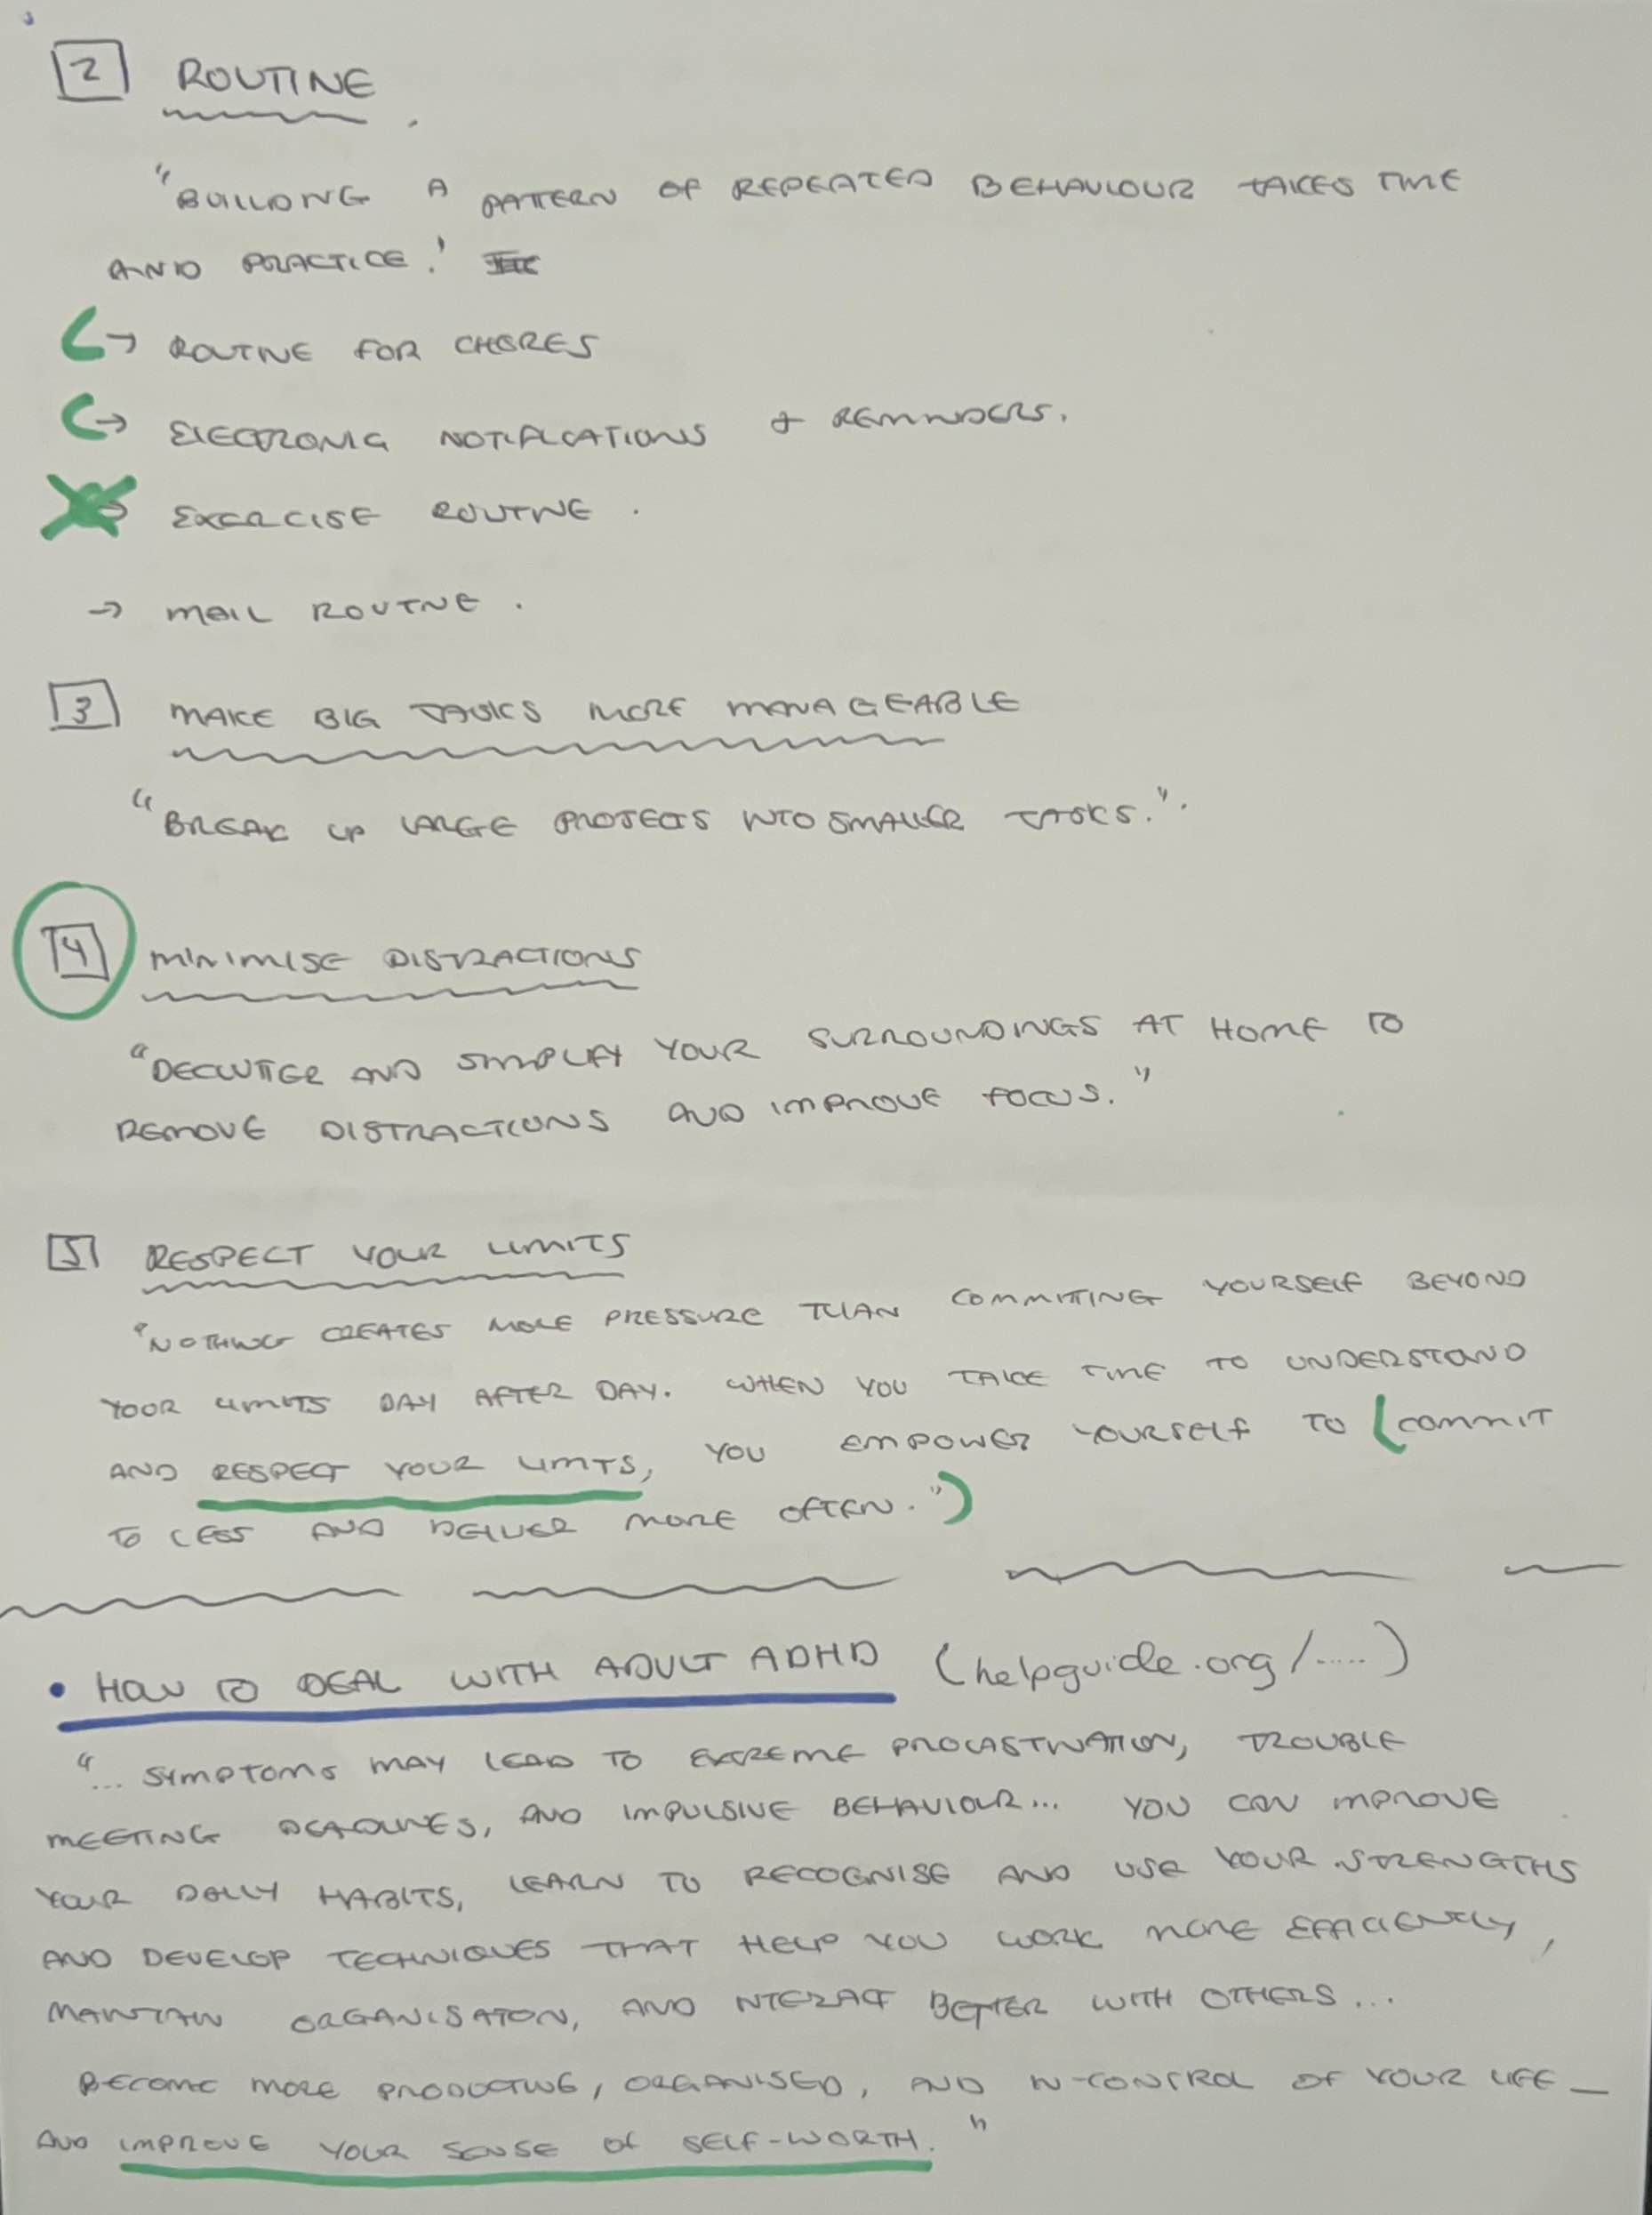 2 ROUTINE
"BUILDING A PATTERN OF REPEATED BEHAVIOUR TAKES TIME
AND PRACTICE."
→ ROUTINE FOR CHORES
→ ELECTRONIC NOTIFICATIONS + REMINDERS.
→ EXERCISE ROUTINE.
→ MAIL ROUTINE.
3 MAKE BIG TASKS MORE MANAGEABLE
"BREAK UP LARGE PROJECTS INTO SMALLER TASKS.".
4 MINIMISE DISTRACTIONS
"DECLUTTER AND SIMPLIFY YOUR SURROUNDINGS AT HOME TO
REMOVE DISTRACTIONS AND IMPROVE FOCUS."
5 RESPECT YOUR LIMITS
"NOTHING CREATES MORE PRESSURE THAN COMMITTING YOURSELF BEYOND
YOUR LIMITS DAY AFTER DAY. WHEN YOU TAKE TIME TO UNDERSTAND
AND RESPECT YOUR LIMITS, YOU EMPOWER YOURSELF TO (COMMIT
TO LESS AND DELIVER MORE OFTEN.")
• HOW TO DEAL WITH ADULT ADHD (helpguide.org/.....)
"... SYMPTOMS MAY LEAD TO EXTREME PROCASTINATION, TROUBLE
MEETING DEADLINES, AND IMPULSIVE BEHAVIOUR... YOU CAN IMPROVE
YOUR DAILY HABITS, LEARN TO RECOGNISE AND USE YOUR STRENGTHS
AND DEVELOP TECHNIQUES THAT HELP YOU WORK MORE EFFICIENTLY,
MAINTAIN ORGANISATION, AND INTERACT BETTER WITH OTHERS...
BECOME MORE PRODUCTIVE, ORGANISED, AND IN-CONTROL OF YOUR LIFE —
AND IMPROVE YOUR SENSE OF SELF-WORTH."